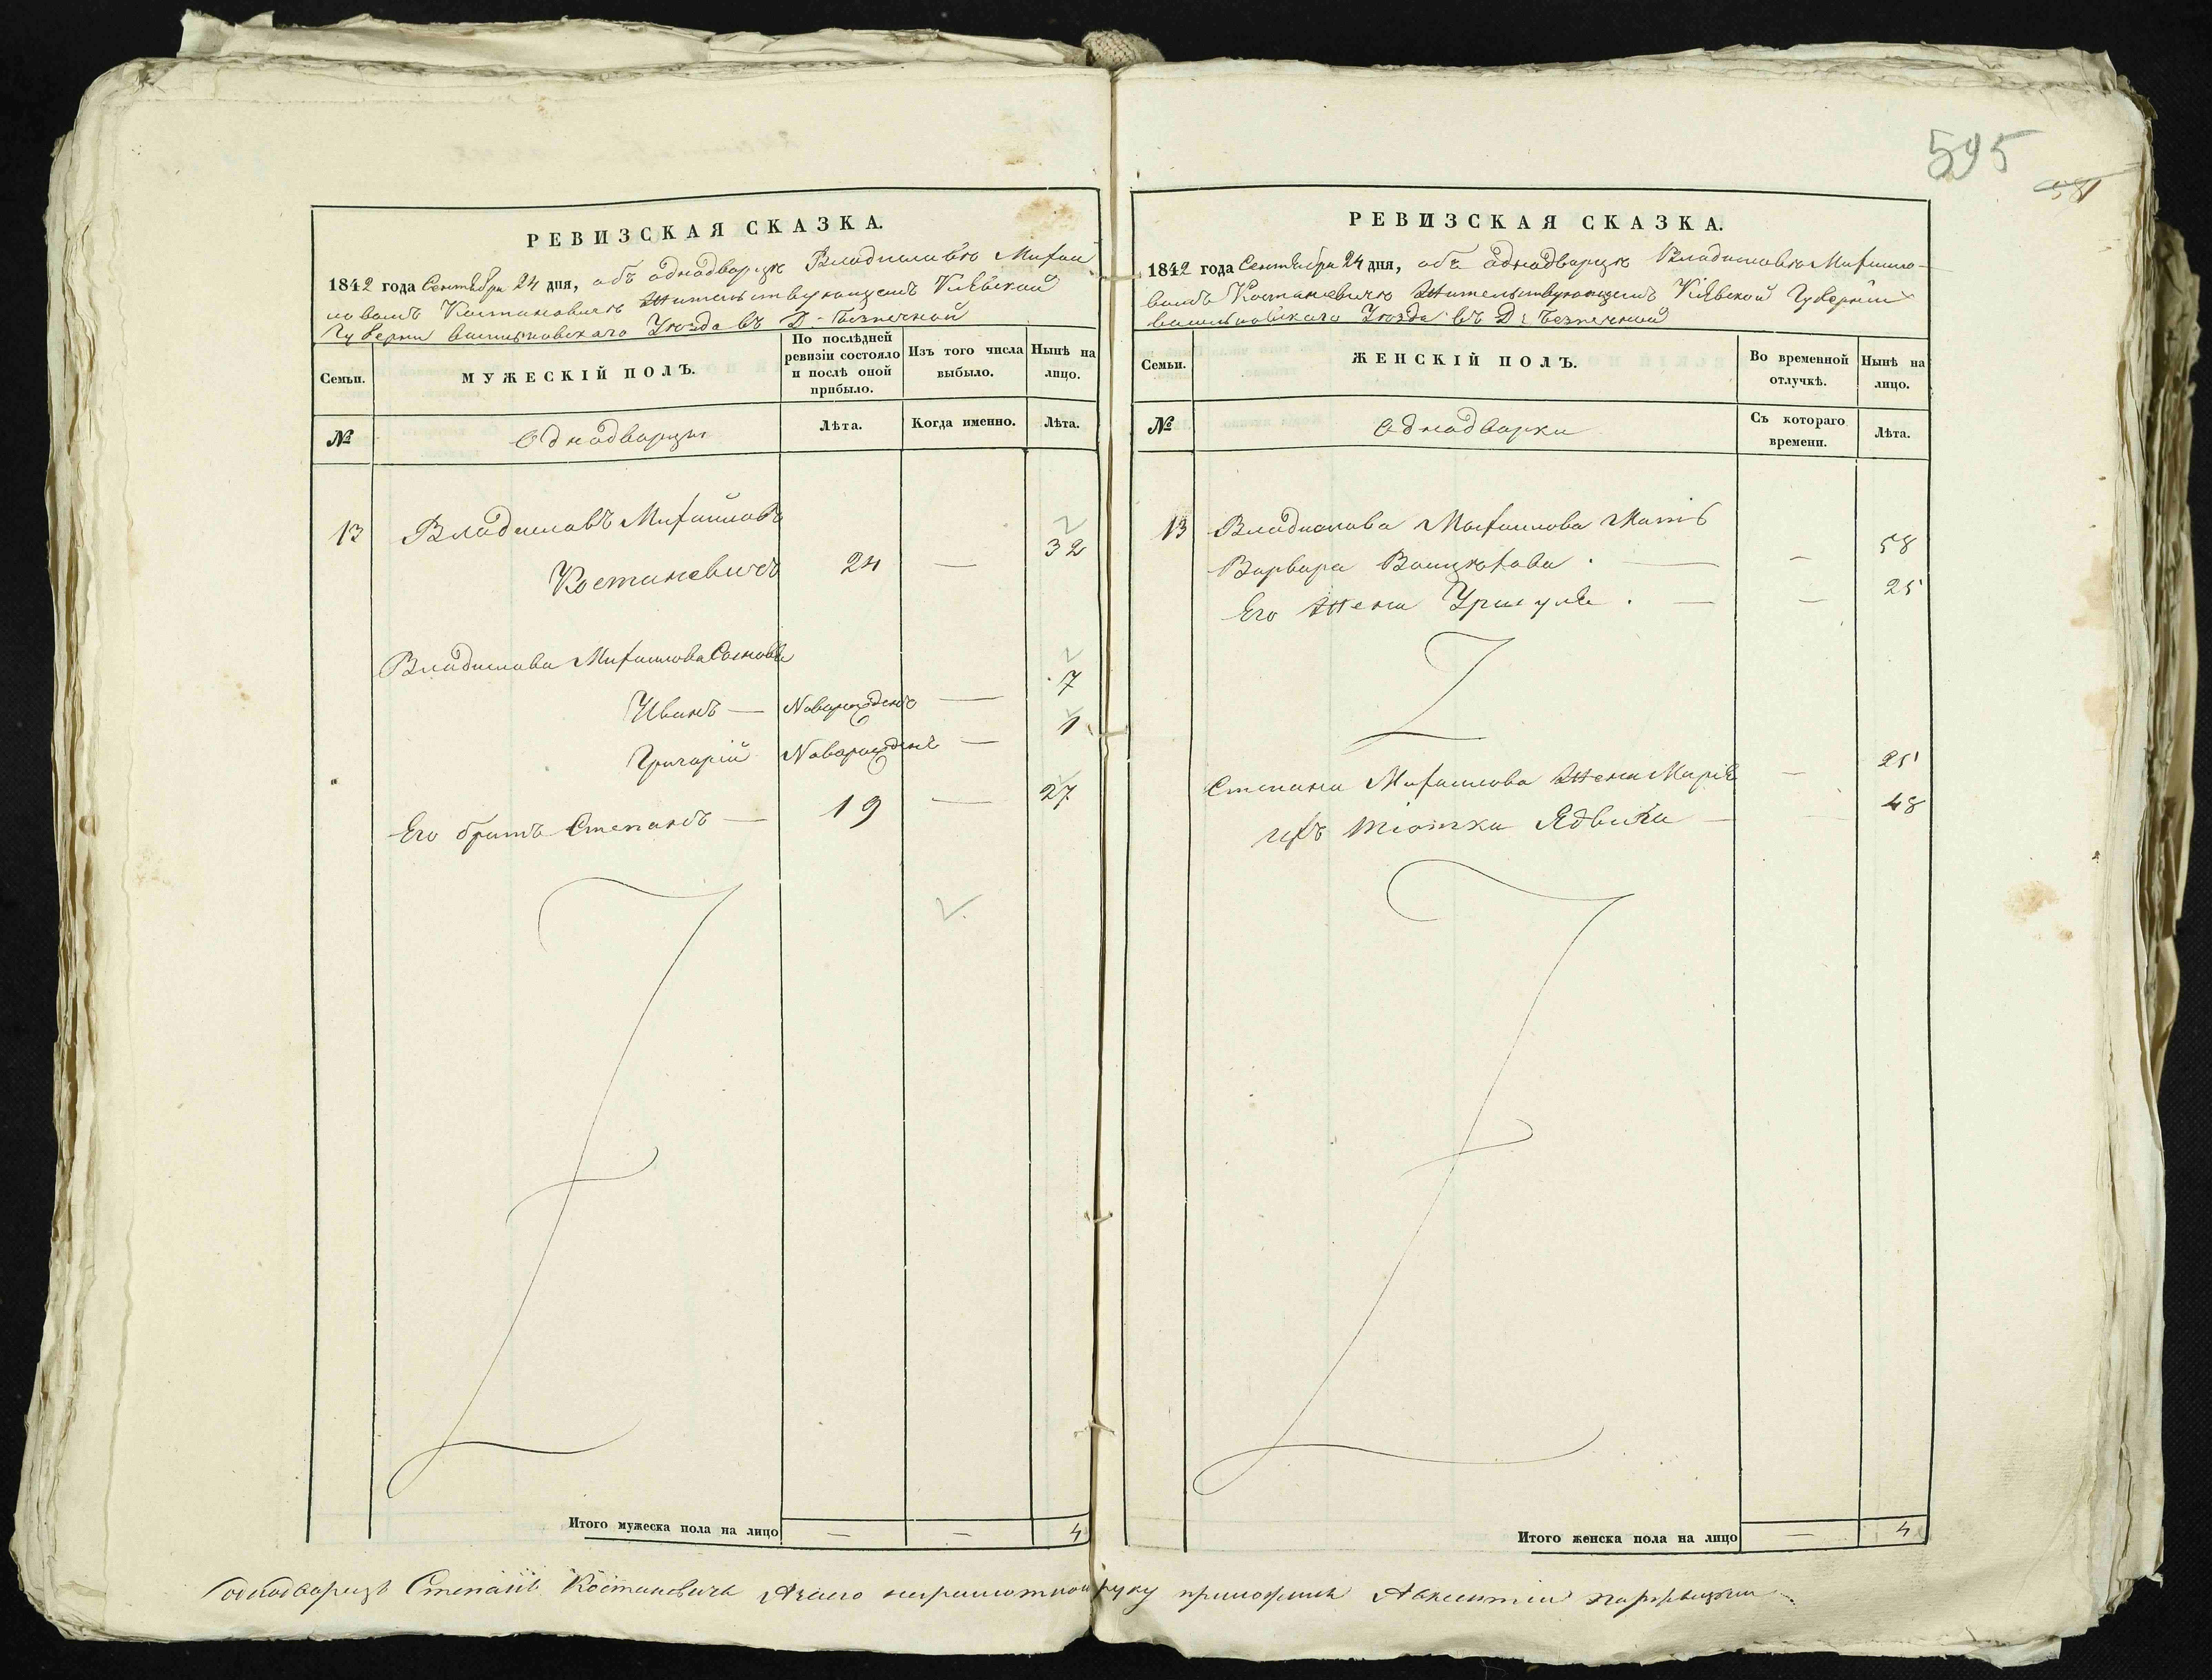 595
581
РЕВИЗСКАЯ СКАЗКА.
1842 года Сентября 24 дня, объ аднадварцѣ Владиславѣ Михаи
ловомъ Костановичѣ Жительствующемъ Кіевской
Губерніи Васильковскаго Уѣзда въ Д. Безпечной
Семьи. МУЖЕСКІЙ ПОЛЪ. По послѣдней ревизіи состояло и послѣ оной прибыло. Изъ того числа выбыло. Нынѣ на лицо.
№ Аднадварцы Лѣта. Когда именно. Лѣта.
13 Владиславъ Михайловъ 32
Костаневичъ 24 —
Владислава Михайлова Сыновья
Иванъ — Новарожденъ — 7
Григарій Новарожденъ — 1
Его братъ Степанъ — 19 — 27
Итого мужеска пола на лицо — — 4
РЕВИЗСКАЯ СКАЗКА.
1842 года Сентября 24 дня, объ аднадварцѣ Владиславѣ Михайло-
вомъ Костаневичѣ Жительствующемъ Кіевской Губерніи
Васильковскаго Уѣзда въ Д: Безпечной
Семьи. ЖЕНСКІЙ ПОЛЪ. Во временной отлучкѣ. Нынѣ на лицо.
№ Аднадварки Съ котораго времени. Лѣта.
13 Владислава Михайлова Мать
Варвара — — 58
Его Жена Урсуля — — 25
Степана Михайлова Жена Марія — 25
ихъ тіотка Ядвига — 48
Итого женска пола на лицо — 4
однодворецъ Степанъ Костаневича Азаего неграмотной руку приложилъ